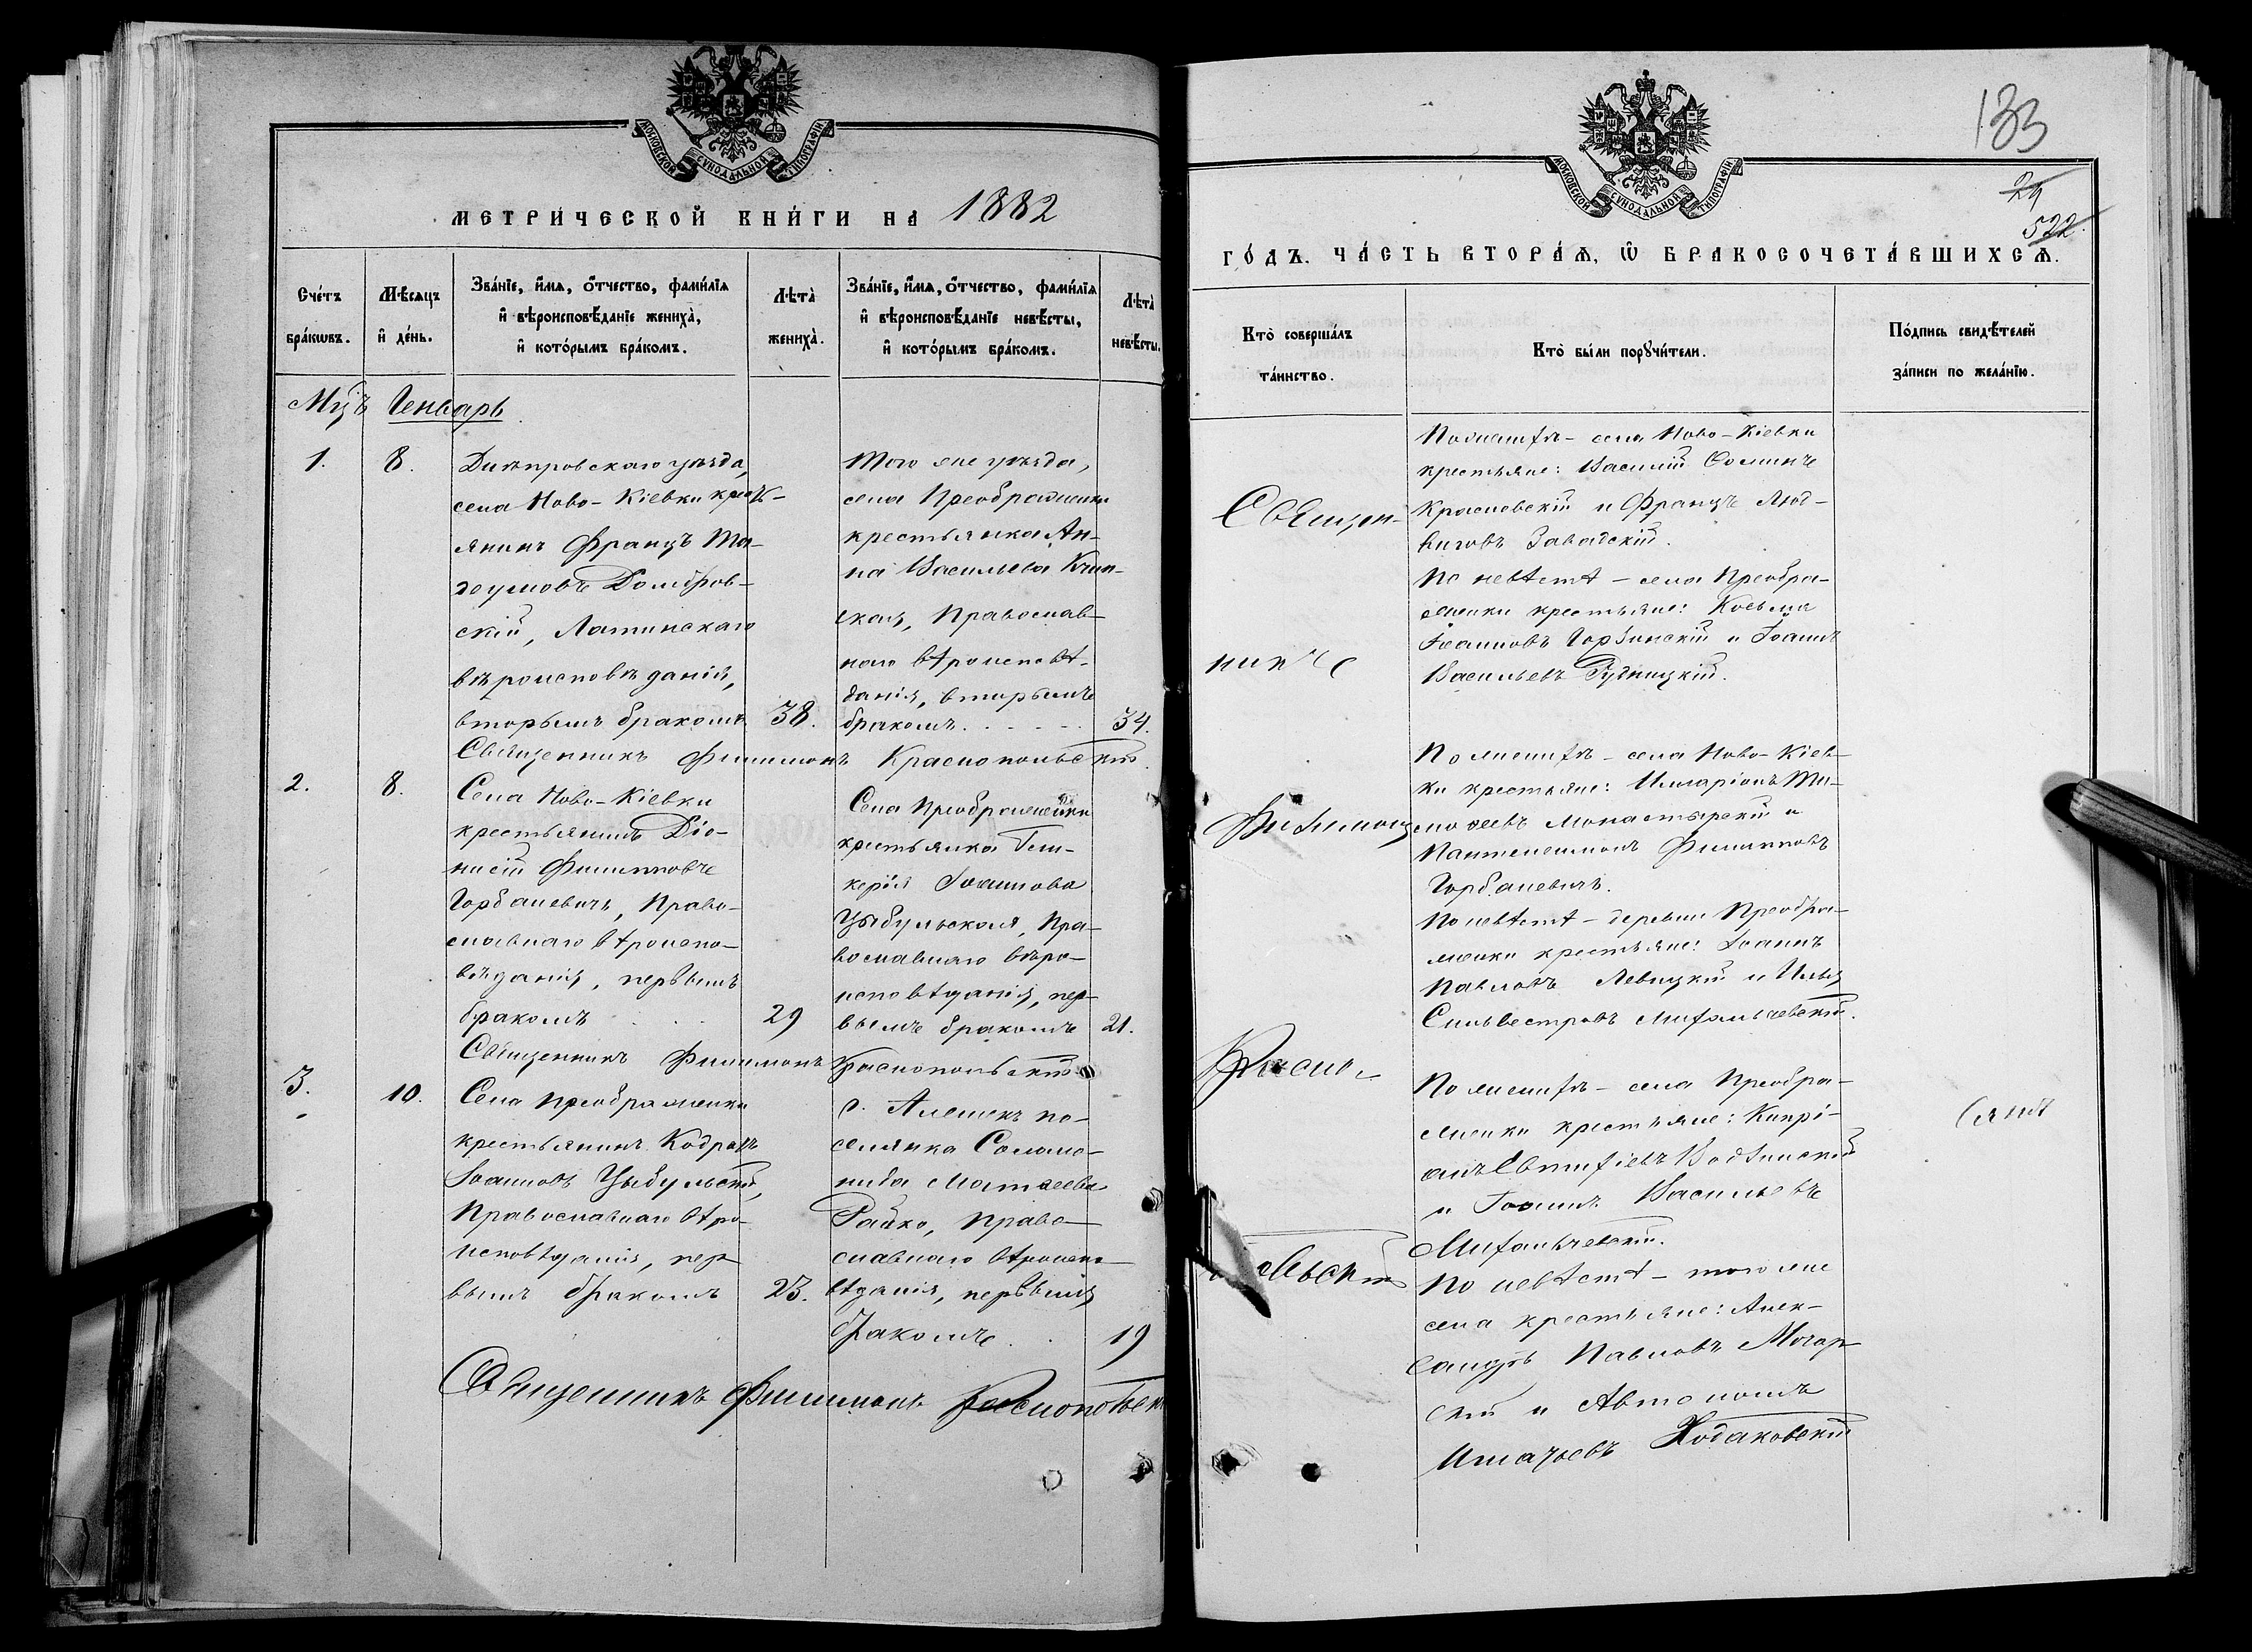 МОСКОВСКОЙ СУНОДАЛЬНОЙ ТИПОГРАФІИ
МЕТРИ́ЧЕСКОЙ КНИ́ГИ НА 1882
Сче́тъ бра́кωвъ.
Мѣ́сяцъ и҆ де́нь.
Зва́нїе, и҆́мѧ, ѻ҆́тчество, фами́лїѧ
и҆ вѣроисповѣ́данїе жениха̀,
и҆ кото́рымъ бра́комъ.
Лѣта̀ жениха̀.
Зва́нїе, и҆́мѧ, ѻ҆́тчество, фами́лїѧ
и҆ вѣроисповѣ́данїе невѣ́сты,
и҆ кото́рымъ бра́комъ.
Лѣта̀ невѣ́сты.
Мцъ Генварь
1.
8.
Днѣпровскаго уѣзда,
села Ново-Кіевки крест-
янинъ Францъ Та-
деушовъ Домбров-
скій, Латинскаго
вѣроисповѣданія,
вторымъ бракомъ
38.
Того же уѣзда,
села Преображенки
крестьянка Ан-
на Васильева
ская, Православ-
наго вѣроисповѣ-
данія, вторымъ
бракомъ
34.
Священникъ Филимонъ Краснопольскій
2.
8.
Села Ново-Кіевки
крестьянинъ Діо-
нисій Филипповъ
Горбачевичъ, Право-
славнаго вѣроиспо-
вѣданія, первымъ
бракомъ
29
Села Преображенки
крестьянка Гли-
керія Іоаннова
Цыбульская, Пра-
вославнаго вѣро-
исповѣданія, пер-
вымъ бракомъ
21.
Священникъ Филимонъ Краснопольскій
3.
10.
Села Преображенки
крестьянинъ Кодратъ
Іоанновъ Цыбульскій,
Православнаго вѣро-
исповѣданія, пер-
вымъ бракомъ
23.
с. Алешекъ по-
селянка Соломо-
нида Матѳеева
Райко, Право-
славнаго вѣроиспо-
вѣданія, первымъ
бракомъ
19
Священникъ Филимонъ Краснопольскій
133
29
522
МОСКОВСКОЙ СУНОДАЛЬНОЙ ТИПОГРАФІИ
ГО́ДЪ. ЧА́СТЬ ВТОРА́Ѧ, Ѽ БРАКОСОЧЕТА́ВШИХСѦ.
Кто̀ соверша́лъ
та́инство.
Кто̀ бы́ли порꙋчи́тели.
По́дпись свидѣ́телей
за́писи по жела́нїю.
Священ-
никъ
Филимонъ
Красно-
польскій
По женихѣ - села Ново-Кіевки
крестьяне: Василій Фоминъ
Красневскій и Францъ Люд-
виговъ Завадскій.
По невѣстѣ - села Преобра-
женки крестьяне: Косьма
Іоанновъ Горбинскій и Іоаннъ
Васильевъ Рудницкій.
По женихѣ - села Ново-Кіев-
ки крестьяне: Илларіонъ Ти-
моѳеевъ Монастырскій и
Пантелеимонъ Филипповъ
Горбачевичъ.
По невѣстѣ - деревни Преобра-
женки крестьяне: Іоаннъ
Павловъ Левицкій и Илья
Сильвестровъ Михальчевскій.
По женихѣ - села Преобра-
женки крестьяне: Кипрі-
анъ Евтихіевъ Водзинскій
и Іоаннъ Васильевъ
Михальчевскій.
По невѣстѣ - того же
села крестьяне: Алек-
сандръ Павловъ Могор-
скій и Автономъ
Игнатьевъ Ходаковскій